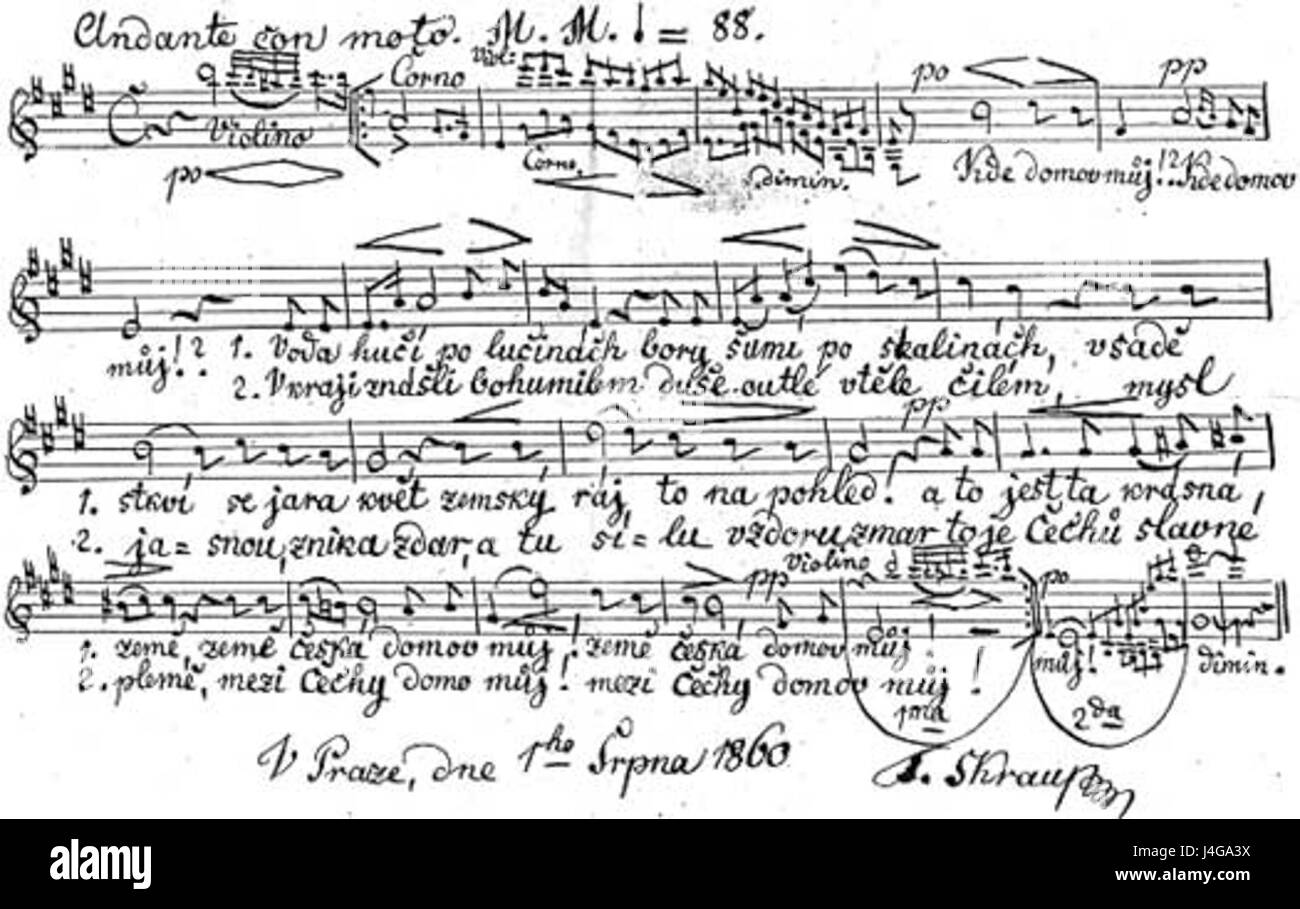 Andante con moto. M. M. ♩ = 88.
Viol:
Corno
po
pp
Violino
po
Corno.
dimin.
Kde domov můj!? Kde domov
můj!? 1. Voda hučí po lučinách bory šumí po skalinách, všadě
2. V kraji znášli bohumilém duše outlé vtěle čilém, mysl
pp
1. stkví se jara květ zemský ráj, to na pohled! a to jest ta krásná,
2. ja=snou, znik a zdar, a tu sí=lu vzdoru, zmar to je Čechů slavné
Violino
pp
po
1. země, země česká domov můj! země česká domov můj!
můj!
dimin.
2. plémě, mezi Čechy domo můj! mezi Čechy domov můj!
1ma
2da
V Praze, dne 1ho Srpna 1860
F. Škraup
alamy
alamy
Image ID: J4GA3X
www.alamy.com